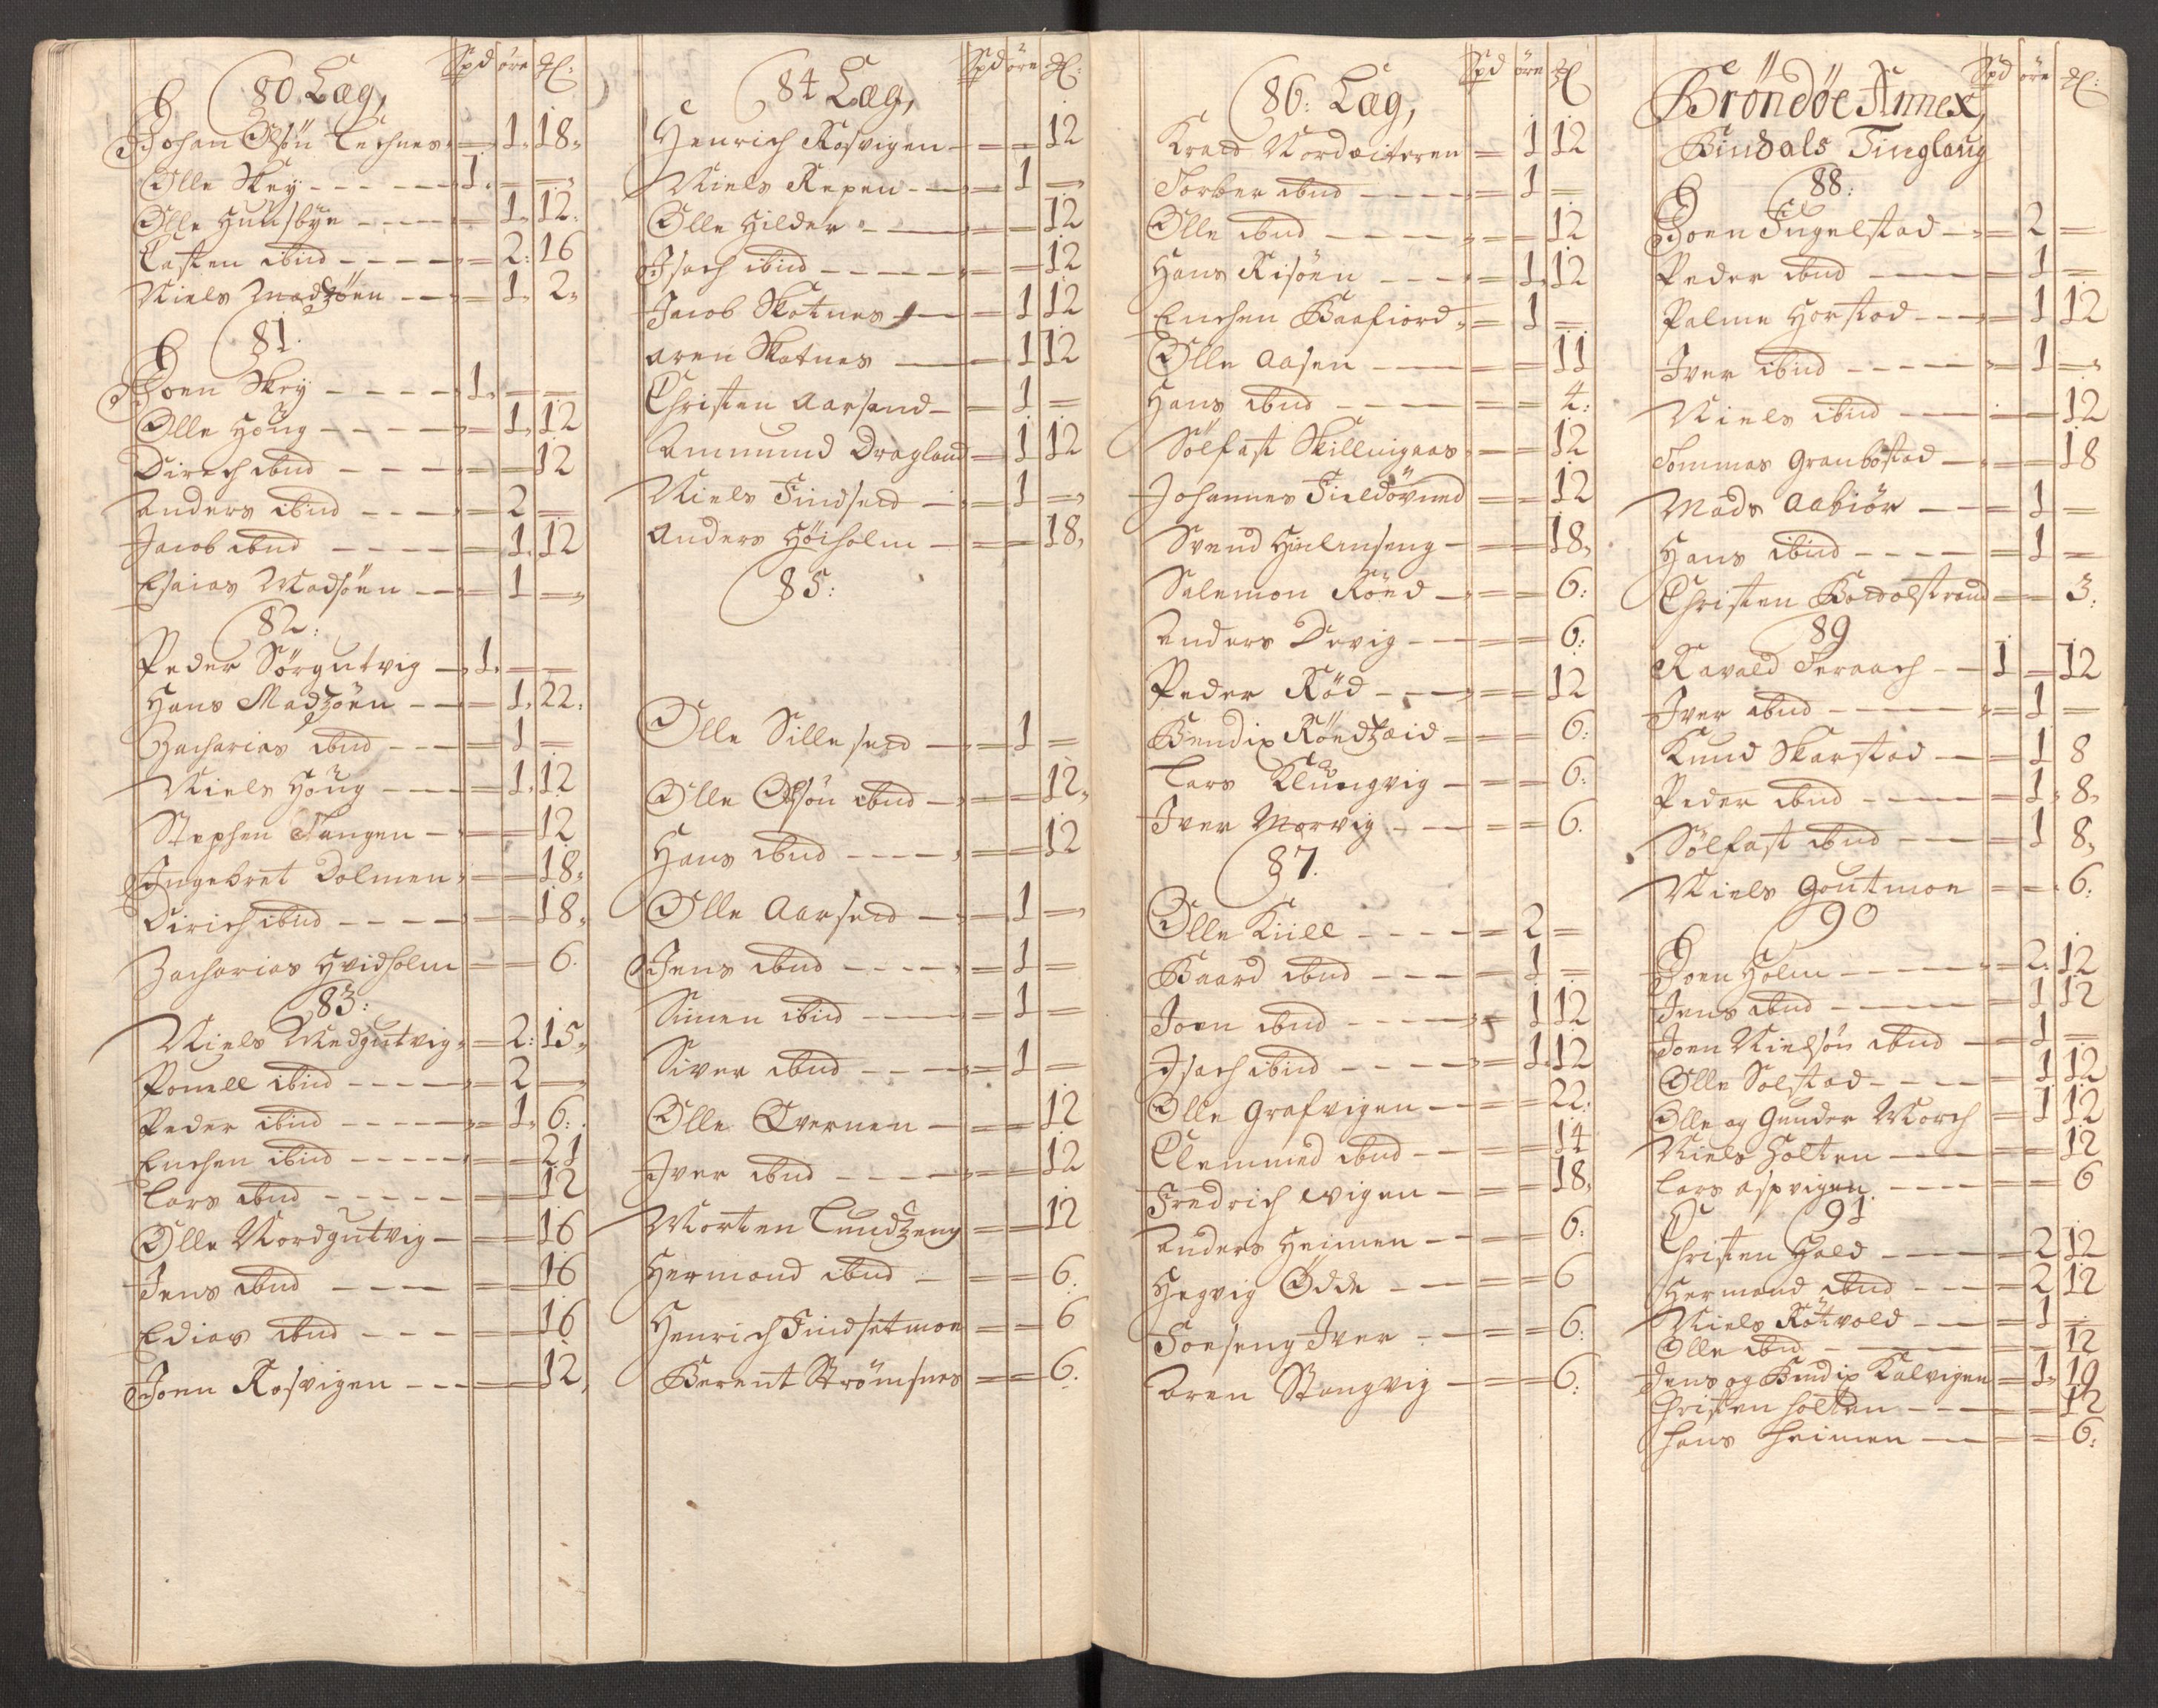 Spd øre ℔:
80 Læg,
Johan Olsøn Lechnes = 1. 18.
Olle Skey - - - - 1. = =
Olle Huusbye - - - = 1. 12.
Casten ibid - - - - = 2: 16
Niels Madzøen - - = 1. 2.
81.
Joen Skey - - - - 1. = =
Olle Høug - - - - = 1. 12
Dirich ibid - - - = = 12
Anders ibid - - - = 2 =
Jacob ibid - - - - = 1. 12
Esaias Madsøen - - = 1 =
82:
Peder Sørgutvig - 1. = =
Hans Madzøen - - = 1. 22.
Zacharias ibid - - - = 1 =
Niels Høug - - - = 1. 12
Stephen Tangen - = = 12
Ingebret Dolmen = = 18.
Dirich ibid - - - - = = 18.
Zacharias Hvidholm = = 6.
83:
Niels Medgutvig = 2: 15.
Powell ibid - - - - = 2 =
Peder ibid - - - - = 1. 6.
Enchen ibid - - - - = = 21
Lars ibid - - - - - = = 12
Olle Nordgutvig - = = 16
Jens ibid - - - - = = 16
Edias ibid - - - = = 16
Joen Rosvigen - - - = = 12,
Spd øre ℔:
84 Læg,
Henrich Rosvigen - = = 12
Niels Repen - - - = 1 =
Olle Hilder - - - = = 12
Isach ibid - - - - - = = 12
Jacob Skotnes - - = 1 12
Aren Skotnes - - = 1 12
Christen Aarsand - = 1 =
Ammund Dragland = 1 12
Niels Findseid - = 1 =
Anders Høiholm - = = 18,
85:
Olle Silleseid - = 1 =
Olle Olsøn ibid - = = 12,
Hans ibid - - - - = = 12
Olle Aarseid - - = 1 =
Jens ibid - - - - = 1 =
Simen ibid - - - = 1 =
Siver ibid - - - - = 1 =
Olle Qvernen - = = 12
Iver ibid - - - - = = 12
Morten Lundzeng = = 12
Hermand ibid - = = 6.
Henrich Findsetmoe = = 6
Berent Strømsnes = = 6.
Spd øre ℔
86: Læg,
Nordeiteren = 1 12
Torber ibid - - - - = 1 =
Olle ibid - - - - = = 12
Hans Risøen - - - = 1. 12
Enchen Baafiord = 1 =
Olle Aasen - - - = = 11
Hans ibid - - - - = = 4:
Sølfast Skillingaas = = 12
Johannes Fieldøvned = = 12
Svend Hielmseng - = = 18,
Salemon Røed - = = 6:
Anders Devig - - = = 6:
Peder Rød - - - = = 12
Bendix Røedzeid = = 6:
Lars Klungvig - = = 6:
Iver Morvig - - - = = 6.
87.
Olle Kiill - - - - = 2 =
Baard ibid - - - = 1 =
Joen ibid - - - - = 1 12
Isach ibid - - - - = 1. 12
Olle Grafvigen - = = 22.
Clemmed ibid - - = = 14
Fredrich Wigen - = = 18,
Anders Heimen - - = = 6:
Hegvig Odde - - = = 6
Foeseng Iver - - = = 6:
Aren Stangvig - = = 6:
Spd øre ℔:
Brønøe Annex,
Bindals Tinglaug
88:
Joen Fugelstad - = 2 =
Peder ibid - - - = 1 =
Palme Horstad - - = 1 12
Iver ibid - - - - = 1 =
Niels ibid - - - = = 12
Tommas Granbostad - = = 18
Mads Aabiør - - = 1 =
Hans ibid - - - - = 1 =
Christen Bordolstrand = = 3:
89
Ravald Teraach - - 1 = 12
Iver ibid - - - - = 1 =
Knud Skarstad - - = 1 8
Peder ibid - - - - = 1. 8,
Sølfast ibid - - - = 1 8,
Niels Goutmoe = = 6:
90
Joen Holm - - - - = 2: 12
Jens ibid - - - - = 1 12
Joen Nielsøn ibid - = 1 =
Olle Solstad - - - = 1 12
Olle og Gunder Morch = 1 12
Niels Holten - - - = = 12
Lars aspvigen - - - = = 6
91
Christen Hald - - - = 2 12
Hermand ibid - - - = 2 12
Niels Røtvold - - = 1 =
Olle ibid - - - - = = 12
Jens og Bendix Kalvigen = 1. 19
Christen Holten - - - = = 12
Hans Heimen - - = = 6: